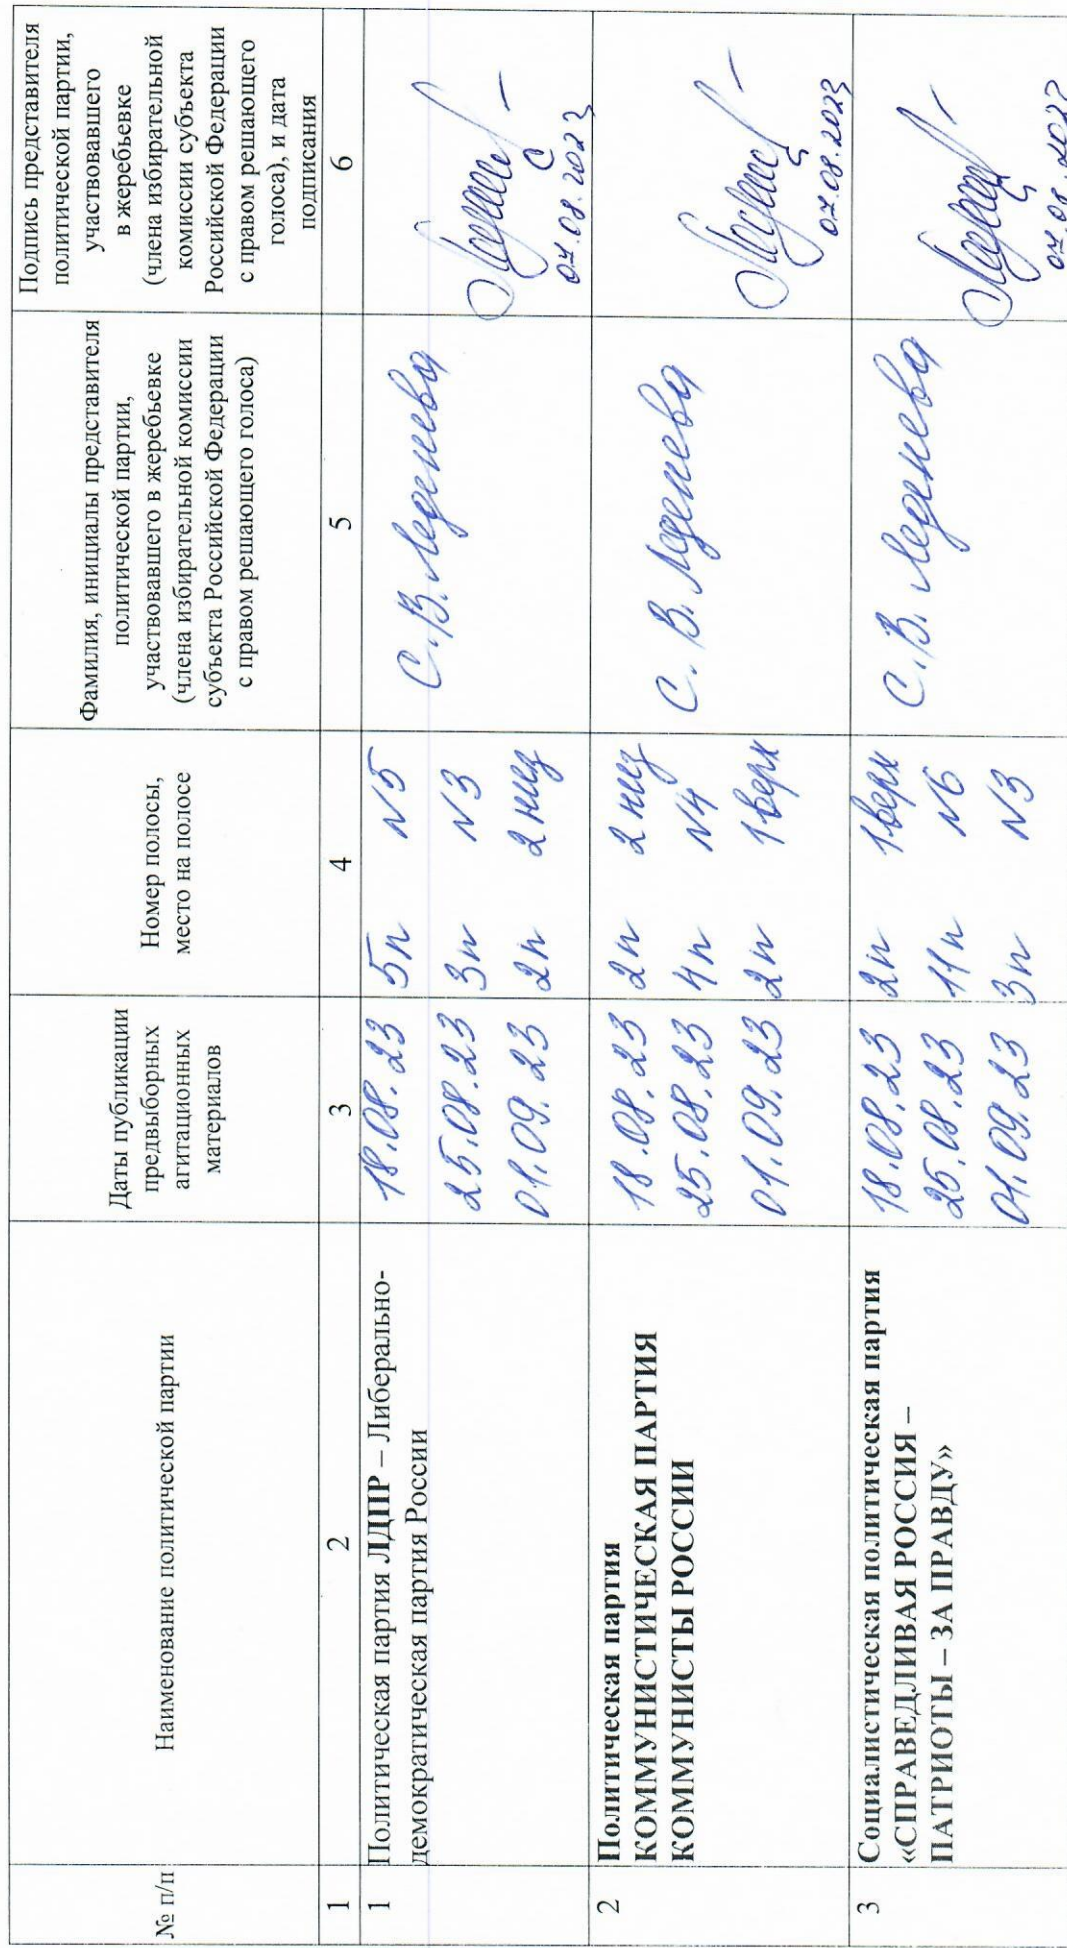 № п/п
Наименование политической партии
Даты публикации
предвыборных
агитационных
материалов
Номер полосы,
место на полосе
Фамилия, инициалы представителя
политической партии,
участвовавшего в жеребьевке
(члена избирательной комиссии
субъекта Российской Федерации
с правом решающего голоса)
Подпись представителя
политической партии,
участвовавшего
в жеребьевке
(члена избирательной
комиссии субъекта
Российской Федерации
с правом решающего
голоса), и дата
подписания
1 2 3 4 5 6
1
Политическая партия ЛДПР – Либерально-
демократическая партия России
18.08.23 5п №5
25.08.23 3п №3
01.09.23 2п 2 низ
С.В. Леденева
07.08.2023
2
Политическая партия
КОММУНИСТИЧЕСКАЯ ПАРТИЯ
КОММУНИСТЫ РОССИИ
18.08.23 2п 2 низ
25.08.23 4п №4
01.09.23 2п 1 верх
С.В. Леденева
07.08.2023
3
Социалистическая политическая партия
«СПРАВЕДЛИВАЯ РОССИЯ –
ПАТРИОТЫ – ЗА ПРАВДУ»
18.08.23 2п 1 верх
25.08.23 11п №6
01.09.23 3п №3
С.В. Леденева
07.08.2023